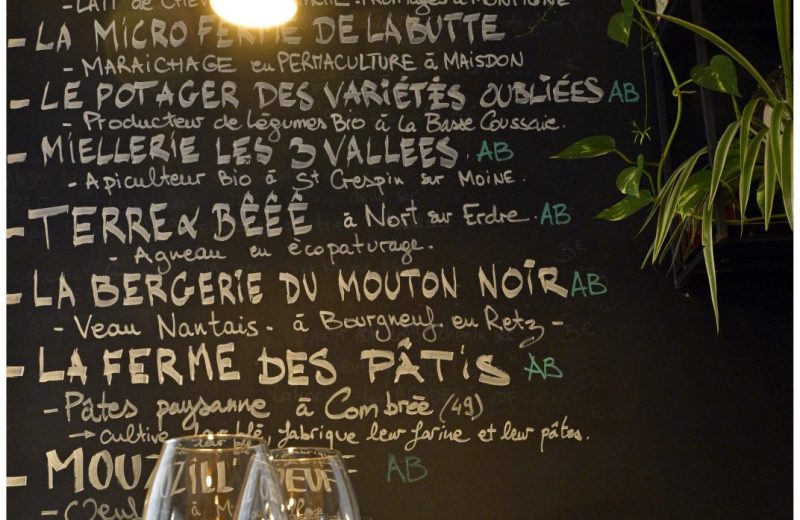 LAIT de CHÈVRE fromages à MONTIGNÉ
- LA MICRO FERME DE LA BUTTE
- MARAICHAGE en PERMACULTURE à MAISDON
- LE POTAGER DES VARIÉTÉS OUBLIÉES AB
- Producteur de légumes Bio à la Basse Coussaie.
- MIELLERIE LES 3 VALLEES. AB
- Apiculteur Bio à St Crespin sur MOINE.
- TERRE & BÊÊÊ à Nort sur Erdre. AB
- Agneau en écopaturage.
- LA BERGERIE DU MOUTON NOIR AB
- Veau Nantais - à Bourgneuf en Retz -
- LA FERME DES PÂTIS AB
- Pâtes paysanne à Combrée (49)
→ cultive leur blé, fabrique leur farine et leur pâtes.
- MOUZILL'OEUF AB
Oeuf à